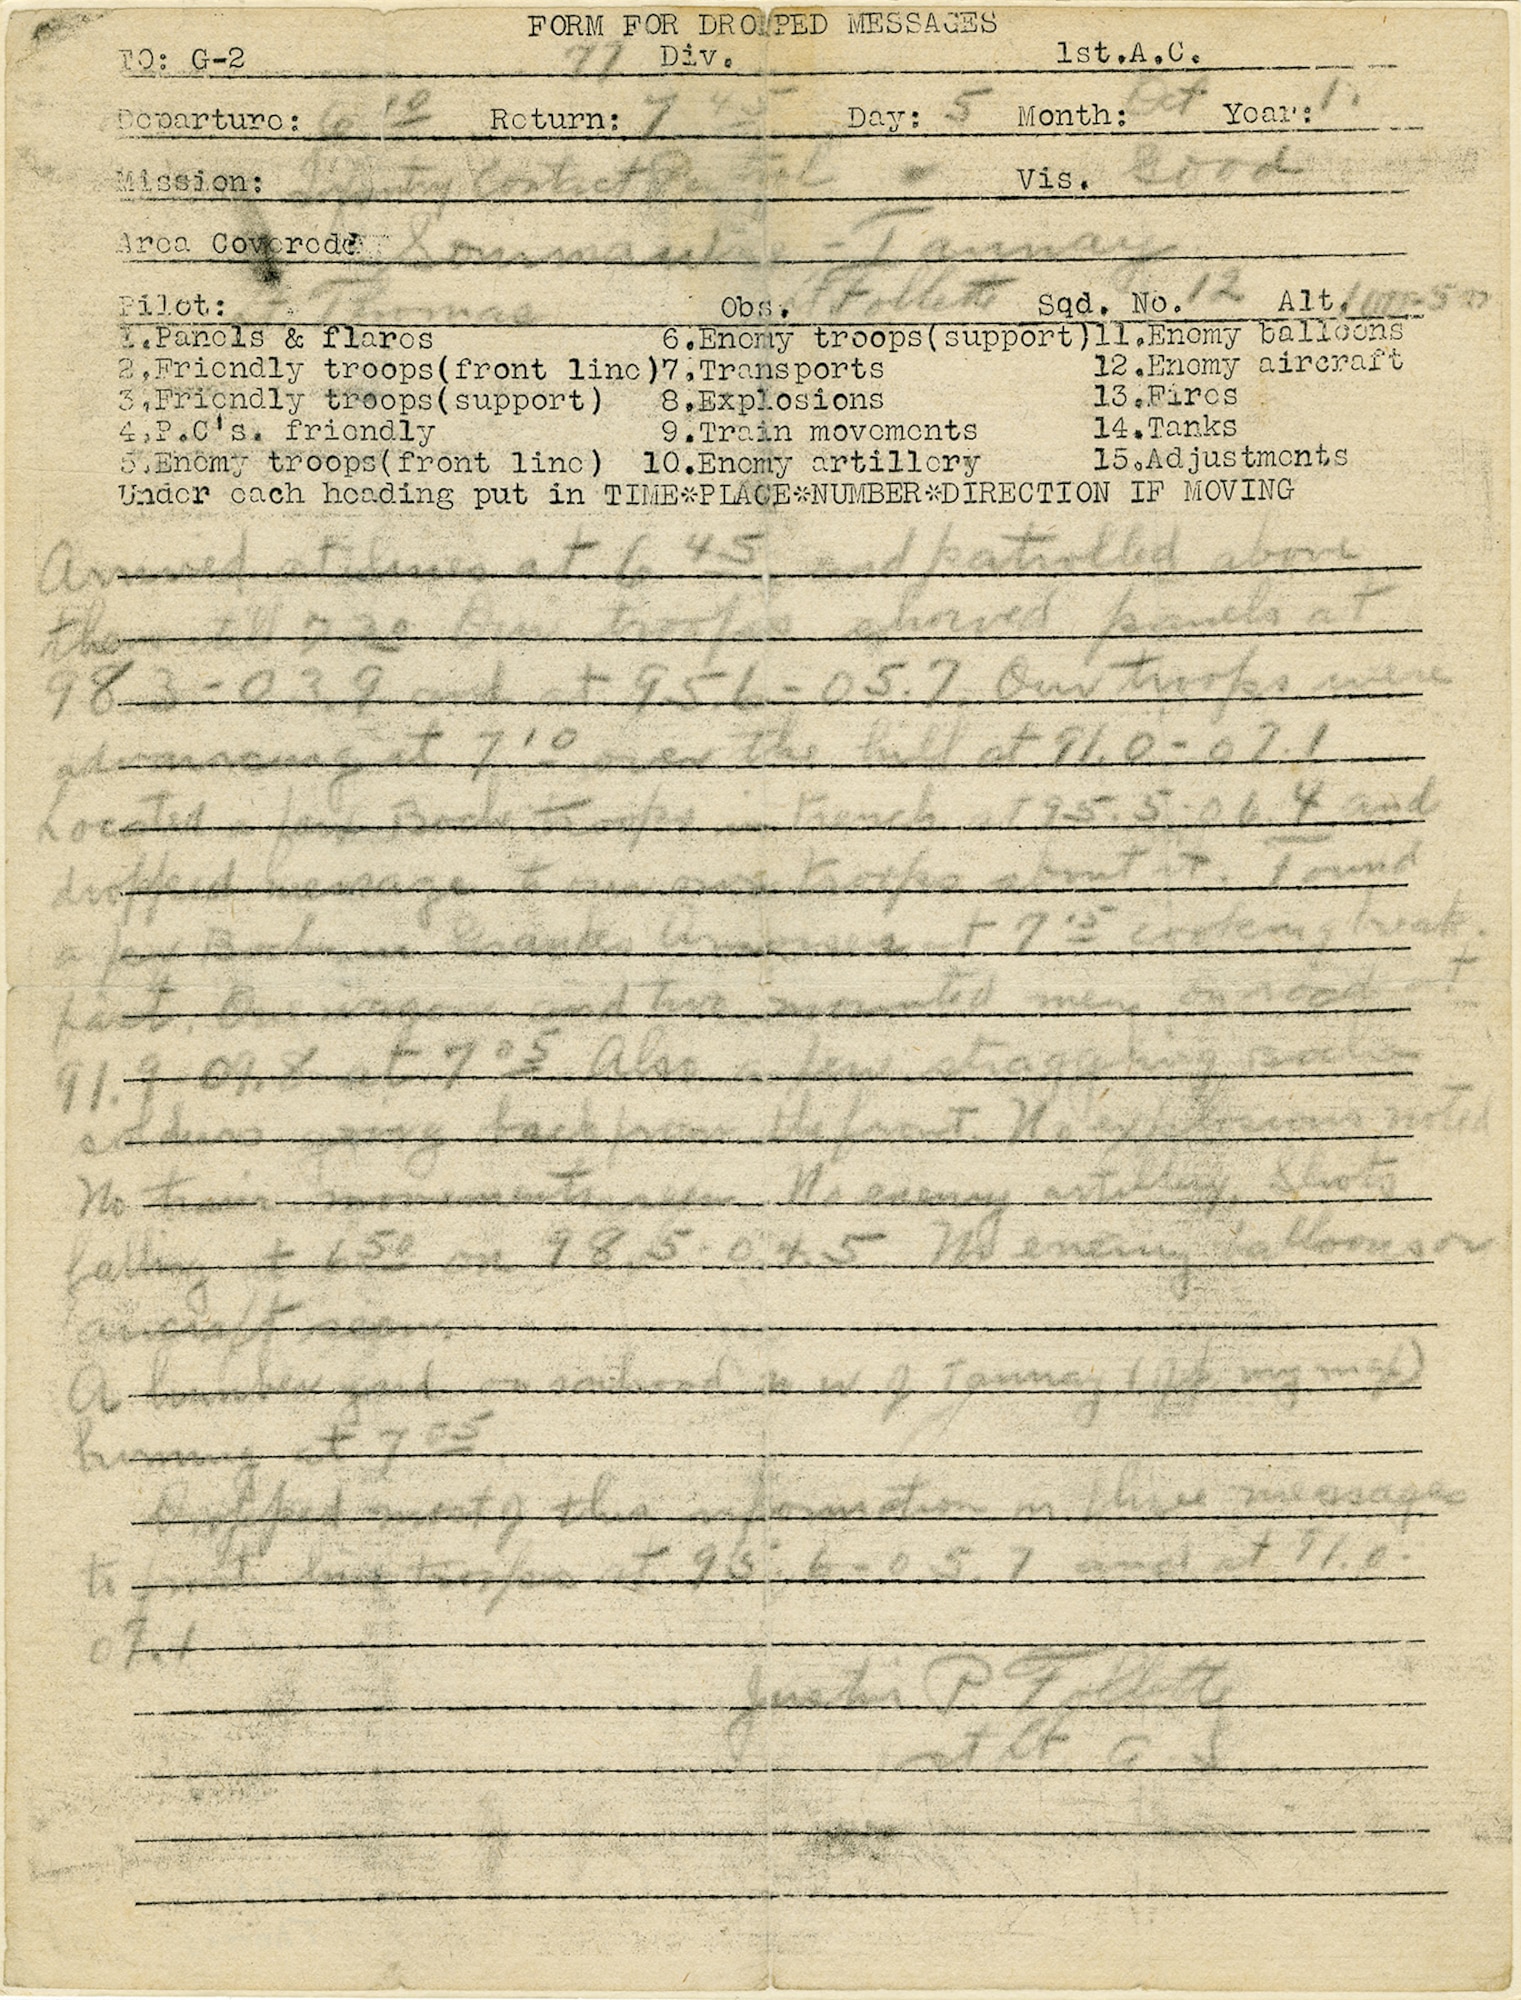 FORM FOR DROPPED MESSAGES
TO: G-2 77 Div. 1st.A.C.
Departure: 6 10 Return: 7 45 Day: 5 Month: Oct Year:
Mission: Infantry Contact Patrol Vis. Good
Area Covered: Sommauthe - Tannay
Pilot: Lt Thomas Obs. Lt Follette Sqd. No. 12 Alt.
1.Panels & flares 6.Enemy troops(support) 11.Enemy balloons
2.Friendly troops(front line) 7.Transports 12.Enemy aircraft
3.Friendly troops(support) 8.Explosions 13.Fires
4.P.C's. friendly 9.Train movements 14.Tanks
5.Enemy troops(front line) 10.Enemy artillery 15.Adjustments
Under each heading put in TIME*PLACE*NUMBER*DIRECTION IF MOVING
Arrived at lines at 6 45 and patrolled above
them till 7 20 Our troops showed panels at
98.3-03.9 and at 95.6-05.7. Our troops were
advancing at 7 10 over the hill at 91.0-07.1
Located a few Boche troops in trench at 95.5-06.4 and
dropped message to our own troops about it. Found
a few Boche in Grandes Armoises at 7 15 cooking break-
fast. One wagon and two mounted men on road at
91.9-09.8 at 7 05 Also a few straggling Boche
soldiers going back from the front. No explosions noted
No train movements seen. No enemy artillery. Shots
falling at 6 50 on 98.5-04.5 No enemy balloons or
aircraft seen.
A lumber yard on railroad n w of Tannay (off my map)
burning at 7 05
Dropped most of this information in three messages
to front line troops at 95.6-05.7 and at 91.0-
07.1
Justin P. Follette
1st Lt A S